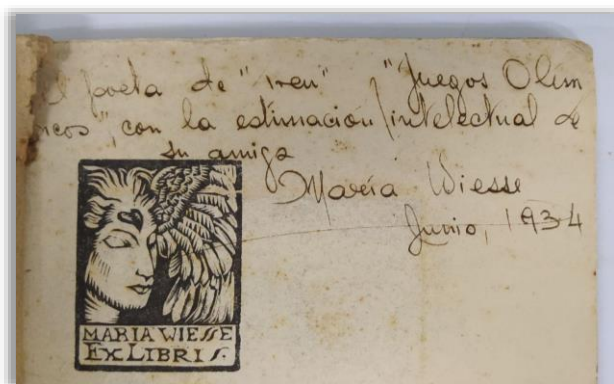 poeta de "Tren" "Juegos Olím
picos", con la estimacion intelectual de
su amiga
María Wiesse
Junio, 1934
MARIA WIESSE
EX LIBRIS.